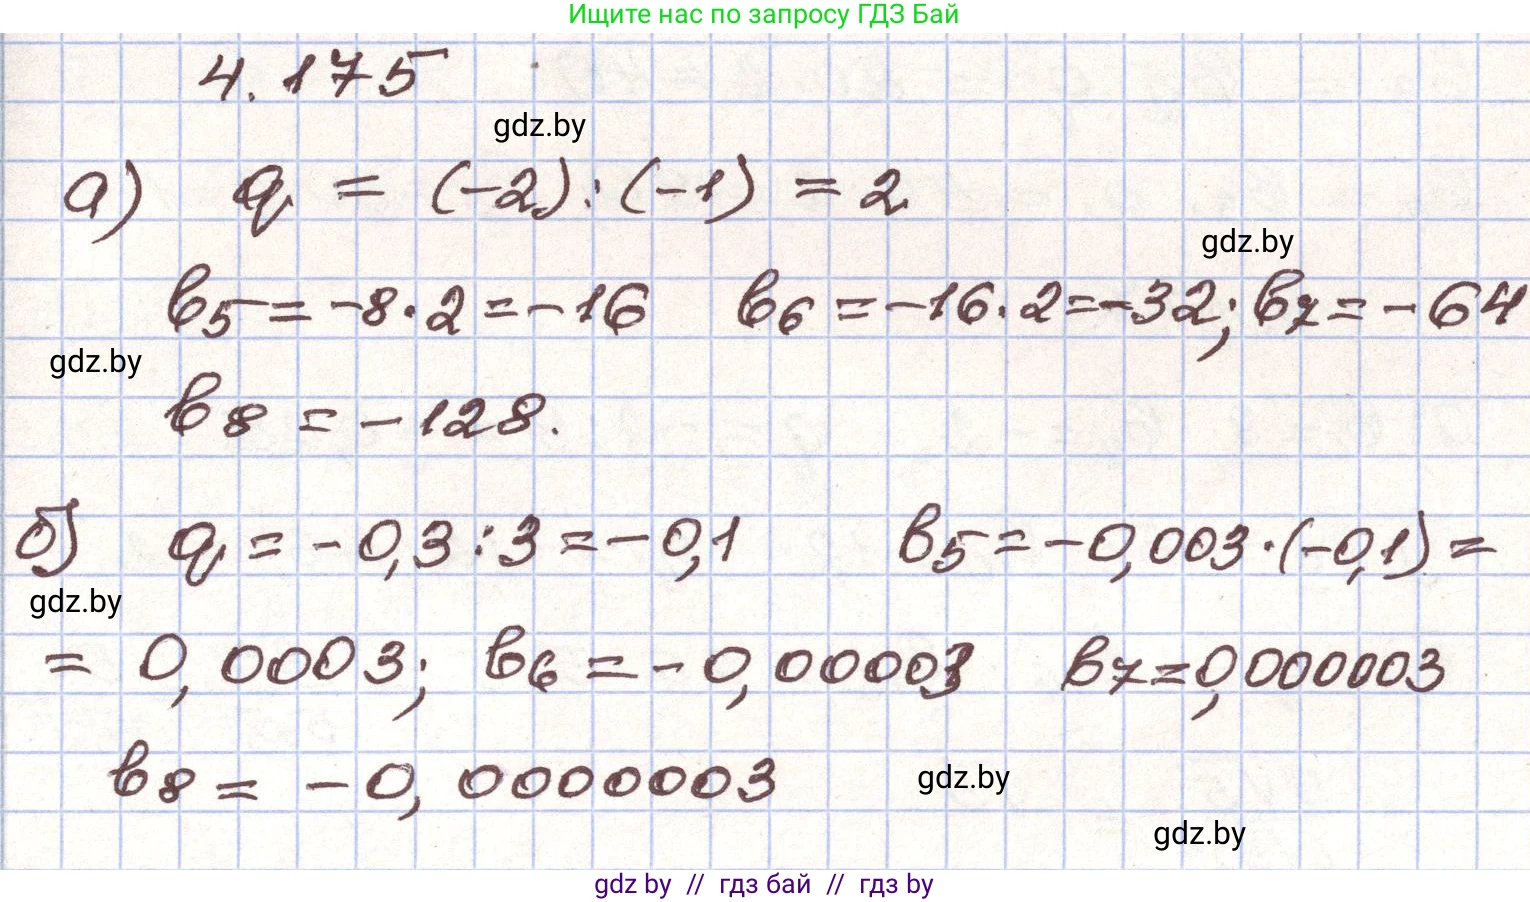 Ищите нас по запросу ГДЗ Бай
4.175
gdz.by
а) q = (-2):(-1) = 2
gdz.by
b5 = -8·2 = -16 b6 = -16·2 = -32; b7 = -64
gdz.by
b8 = -128.
б) q = -0,3:3 = -0,1 b5 = -0,003·(-0,1) =
gdz.by
= 0,0003; b6 = -0,00003 b7 = 0,000003
b8 = -0,0000003
gdz.by
gdz.by
gdz by // гдз бай // гдз by